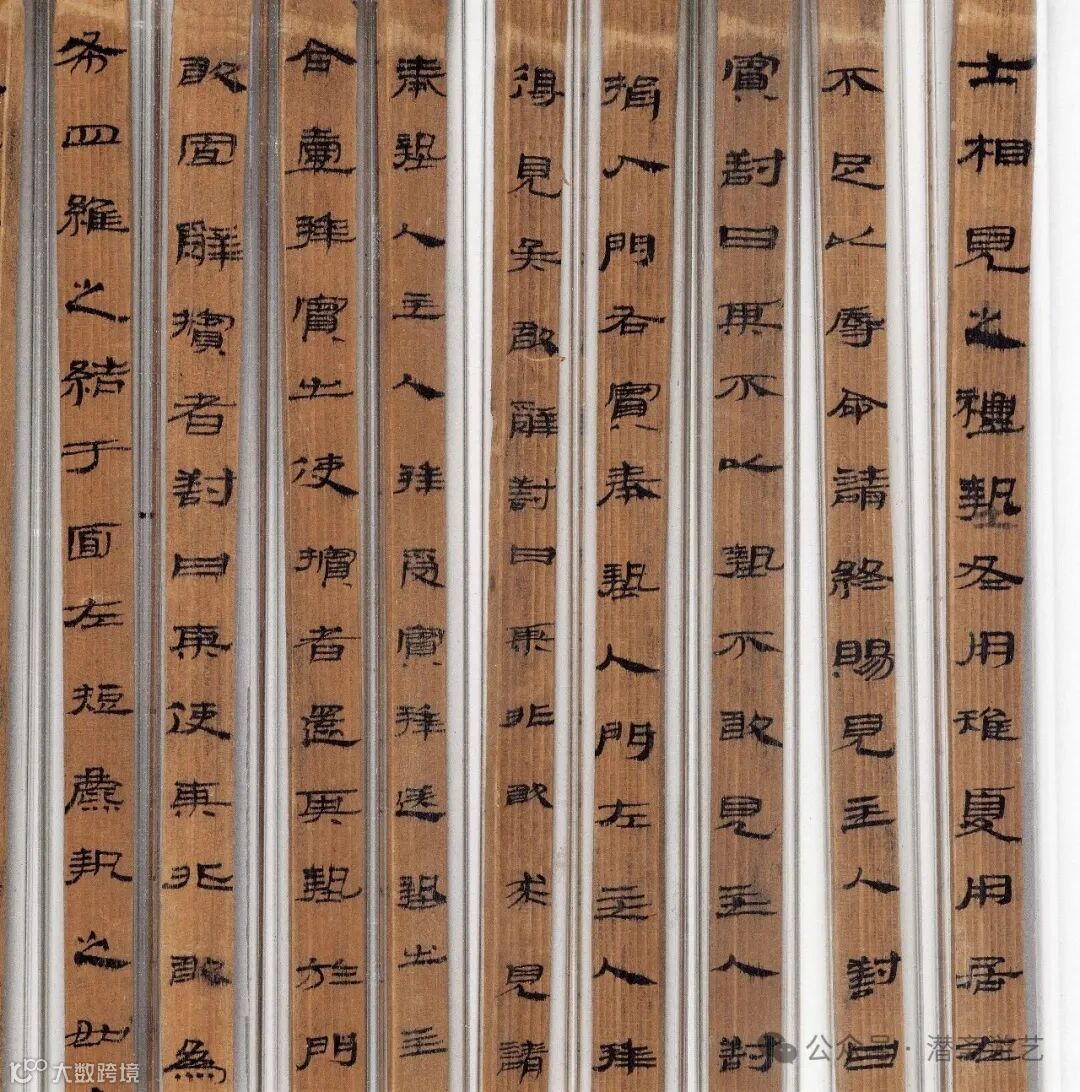 士相見之禮摯冬用雉夏用居左
不足以辱命請終賜見主人對曰
賓對曰某不以摯不敢見主人對
揖入門右賓奉摯入門左主人拜
得見矣敢辭對曰某非敢求見請
奉摯入主人拜受賓拜送摯出主
合壹拜賓出使擯者還其摯於門
敢固辭擯者對曰某使其非敢為
布四維之結于面左短麛執之如
公众号·潜艺
大数跨境